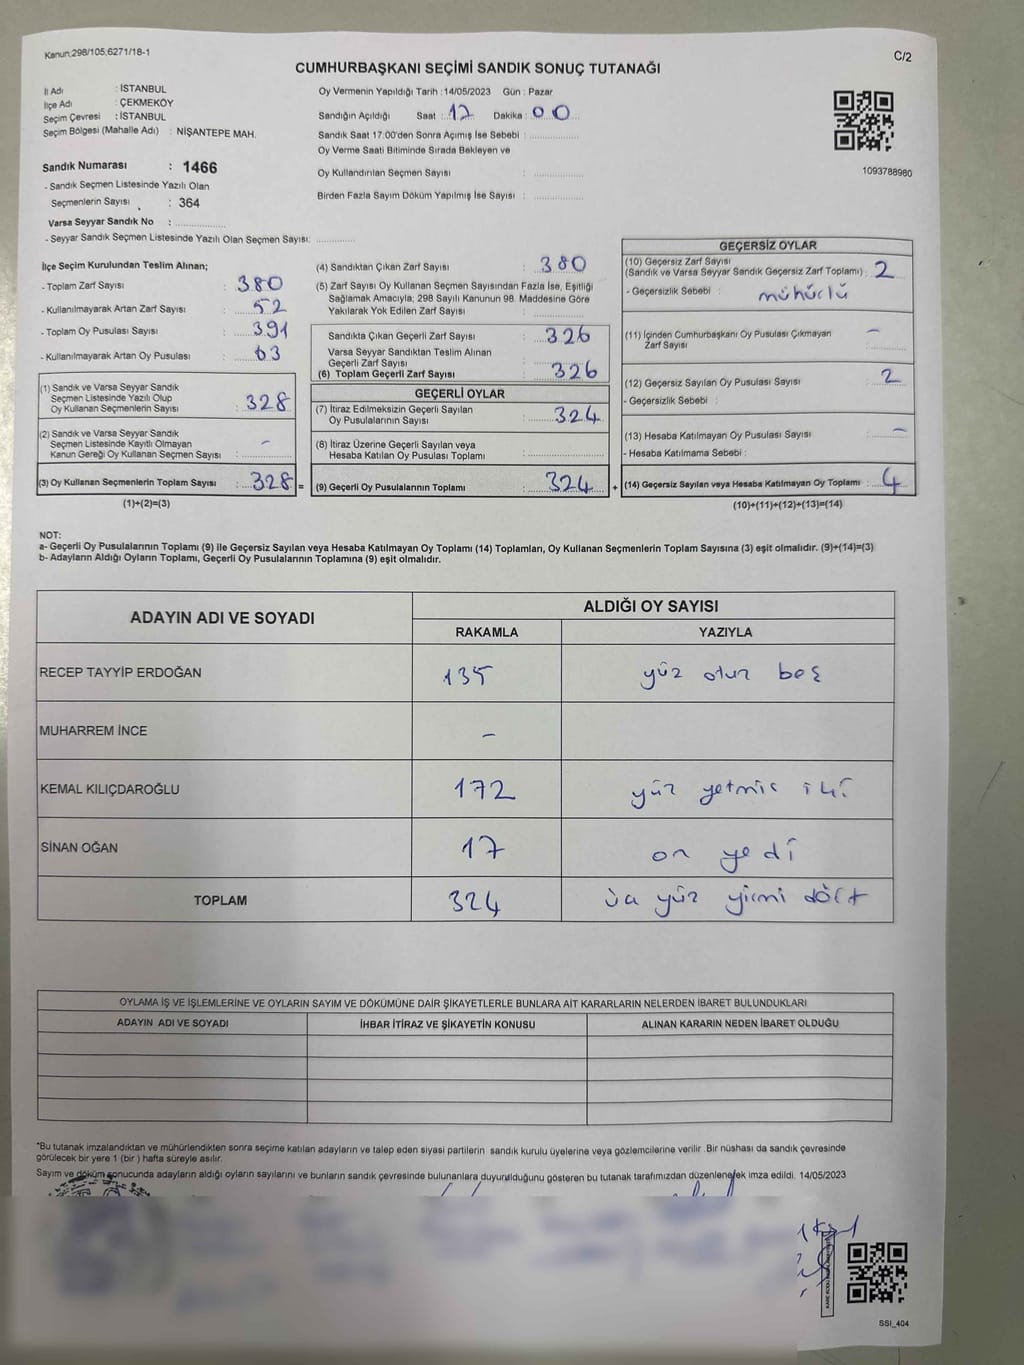 Kanun;298/105,6271/18-1
C/2
CUMHURBAŞKANI SEÇİMİ SANDIK SONUÇ TUTANAĞI
İl Adı : İSTANBUL
İlçe Adı : ÇEKMEKÖY
Seçim Çevresi : İSTANBUL
Seçim Bölgesi (Mahalle Adı) : NİŞANTEPE MAH.
Sandık Numarası : 1466
- Sandık Seçmen Listesinde Yazılı Olan
Seçmenlerin Sayısı : 364
Varsa Seyyar Sandık No :
- Seyyar Sandık Seçmen Listesinde Yazılı Olan Seçmen Sayısı:
Oy Vermenin Yapıldığı Tarih :14/05/2023 Gün : Pazar
Sandığın Açıldığı Saat : 17 Dakika : 00
Sandık Saat 17.00'den Sonra Açılmış İse Sebebi :
Oy Verme Saati Bitiminde Sırada Bekleyen ve
Oy Kullandırılan Seçmen Sayısı :
Birden Fazla Sayım Döküm Yapılmış İse Sayısı :
1093788980
İlçe Seçim Kurulundan Teslim Alınan;
- Toplam Zarf Sayısı : 380
- Kullanılmayarak Artan Zarf Sayısı : 52
- Toplam Oy Pusulası Sayısı : 391
- Kullanılmayarak Artan Oy Pusulası : 63
(1) Sandık ve Varsa Seyyar Sandık
Seçmen Listesinde Yazılı Olup
Oy Kullanan Seçmenlerin Sayısı : 328
(2) Sandık ve Varsa Seyyar Sandık
Seçmen Listesinde Kayıtlı Olmayan
Kanun Gereği Oy Kullanan Seçmen Sayısı : -
(3) Oy Kullanan Seçmenlerin Toplam Sayısı : 328 =
(1)+(2)=(3)
(4) Sandıktan Çıkan Zarf Sayısı : 380
(5) Zarf Sayısı Oy Kullanan Seçmen Sayısından Fazla İse, Eşitliği
Sağlamak Amacıyla; 298 Sayılı Kanunun 98. Maddesine Göre
Yakılarak Yok Edilen Zarf Sayısı :
Sandıkta Çıkan Geçerli Zarf Sayısı : 326
Varsa Seyyar Sandıktan Teslim Alınan
Geçerli Zarf Sayısı :
(6) Toplam Geçerli Zarf Sayısı : 326
GEÇERLİ OYLAR
(7) İtiraz Edilmeksizin Geçerli Sayılan
Oy Pusulalarının Sayısı : 324
(8) İtiraz Üzerine Geçerli Sayılan veya
Hesaba Katılan Oy Pusulası Toplamı :
(9) Geçerli Oy Pusulalarının Toplamı : 324 +
GEÇERSİZ OYLAR
(10) Geçersiz Zarf Sayısı
(Sandık ve Varsa Seyyar Sandık Geçersiz Zarf Toplamı) : 2
- Geçersizlik Sebebi : mühürlü
(11) İçinden Cumhurbaşkanı Oy Pusulası Çıkmayan
Zarf Sayısı : -
(12) Geçersiz Sayılan Oy Pusulası Sayısı : 2
- Geçersizlik Sebebi :
(13) Hesaba Katılmayan Oy Pusulası Sayısı : -
- Hesaba Katılmama Sebebi :
(14) Geçersiz Sayılan veya Hesaba Katılmayan Oy Toplamı : 4
(10)+(11)+(12)+(13)=(14)
NOT:
a- Geçerli Oy Pusulalarının Toplamı (9) ile Geçersiz Sayılan veya Hesaba Katılmayan Oy Toplamı (14) Toplamları, Oy Kullanan Seçmenlerin Toplam Sayısına (3) eşit olmalıdır. (9)+(14)=(3)
b- Adayların Aldığı Oyların Toplamı, Geçerli Oy Pusulalarının Toplamına (9) eşit olmalıdır.
ADAYIN ADI VE SOYADI ALDIĞI OY SAYISI
RAKAMLA YAZIYLA
RECEP TAYYİP ERDOĞAN 135 yüz otuz beş
MUHARREM İNCE -
KEMAL KILIÇDAROĞLU 172 yüz yetmiş iki
SİNAN OĞAN 17 on yedi
TOPLAM 324 üç yüz yirmi dört
OYLAMA İŞ VE İŞLEMLERİNE VE OYLARIN SAYIM VE DÖKÜMÜNE DAİR ŞİKAYETLERLE BUNLARA AİT KARARLARIN NELERDEN İBARET BULUNDUKLARI
ADAYIN ADI VE SOYADI İHBAR İTİRAZ VE ŞİKAYETİN KONUSU ALINAN KARARIN NEDEN İBARET OLDUĞU
*Bu tutanak imzalandıktan ve mühürlendikten sonra seçime katılan adayların ve talep eden siyasi partilerin sandık kurulu üyelerine veya gözlemcilerine verilir. Bir nüshası da sandık çevresinde
görülecek bir yere 1 (bir ) hafta süreyle asılır.
Sayım ve döküm sonucunda adayların aldığı oyların sayılarını ve bunların sandık çevresinde bulunanlara duyurulduğunu gösteren bu tutanak tarafımızdan düzenlenerek imza edildi. 14/05/2023
SSI_404